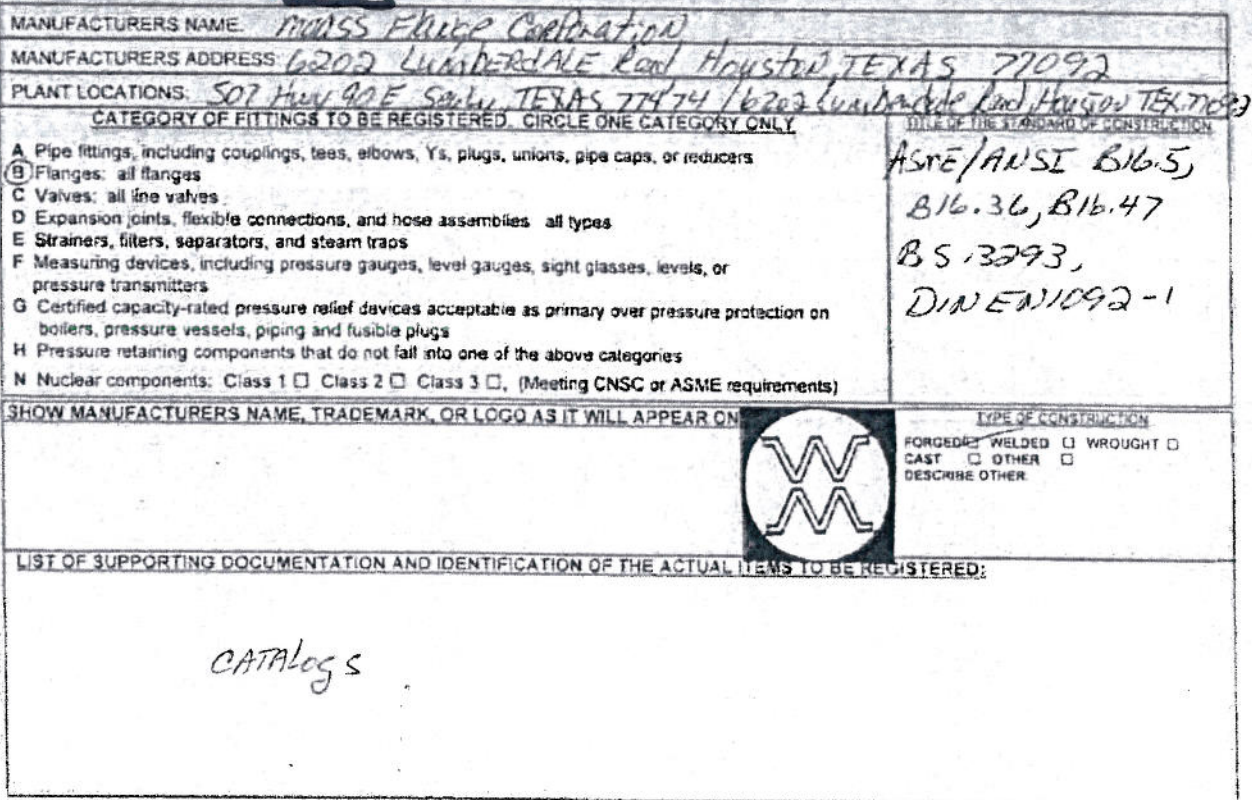 MANUFACTURERS NAME. MAASS Flange Corporation
MANUFACTURERS ADDRESS: 6202 LUMBERDALE Road Houston, TEXAS 77092
PLANT LOCATIONS: 507 Hwy 90 E Sealy, TEXAS 77474 / 6202 Lumberdale Road, Houston TEX. 77092
CATEGORY OF FITTINGS TO BE REGISTERED. CIRCLE ONE CATEGORY ONLY
A Pipe fittings, including couplings, tees, elbows, Ys, plugs, unions, pipe caps, or reducers
B Flanges: all flanges
C Valves: all line valves
D Expansion joints, flexible connections, and hose assemblies all types
E Strainers, filters, separators, and steam traps
F Measuring devices, including pressure gauges, level gauges, sight glasses, levels, or
pressure transmitters
G Certified capacity-rated pressure relief devices acceptable as primary over pressure protection on
boilers, pressure vessels, piping and fusible plugs
H Pressure retaining components that do not fall into one of the above categories
N Nuclear components: Class 1 ☐ Class 2 ☐ Class 3 ☐, (Meeting CNSC or ASME requirements)
TITLE OF THE STANDARD OF CONSTRUCTION
ASME/ANSI B16.5,
B16.36, B16.47
BS.3293,
DIN EN1092-1
SHOW MANUFACTURERS NAME, TRADEMARK, OR LOGO AS IT WILL APPEAR ON
TYPE OF CONSTRUCTION
FORGED ☑ WELDED ☐ WROUGHT ☐
CAST ☐ OTHER ☐
DESCRIBE OTHER
LIST OF SUPPORTING DOCUMENTATION AND IDENTIFICATION OF THE ACTUAL ITEMS TO BE REGISTERED:
CATALOGS